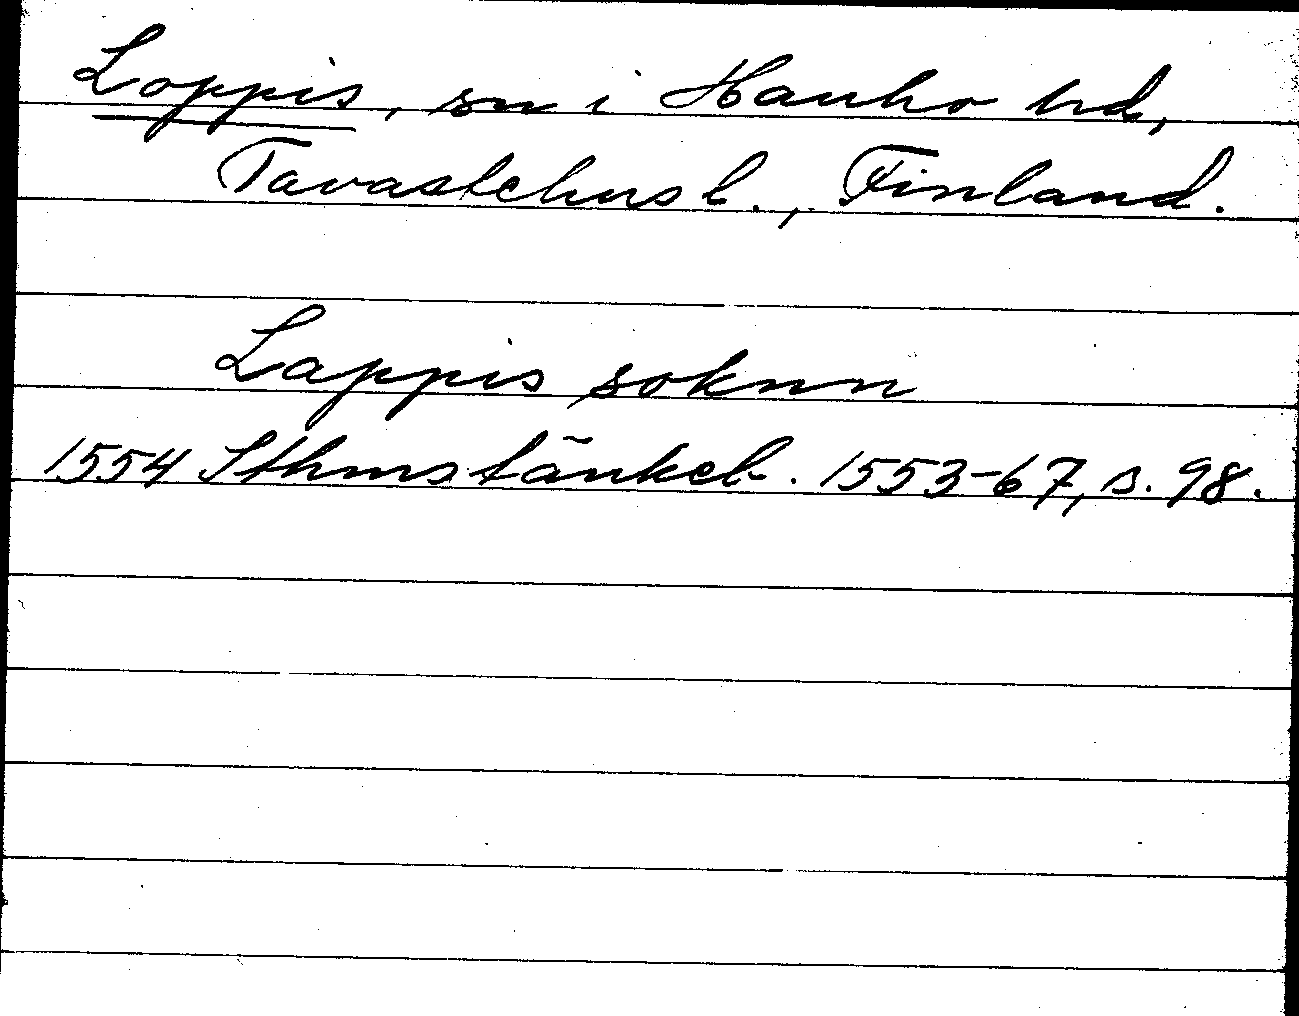 Loppis, sn i Hauho hd,
Tavastehus l., Finland.
Lappis soknn
1554 Sthms tänkeb. 1553-67, s. 98.